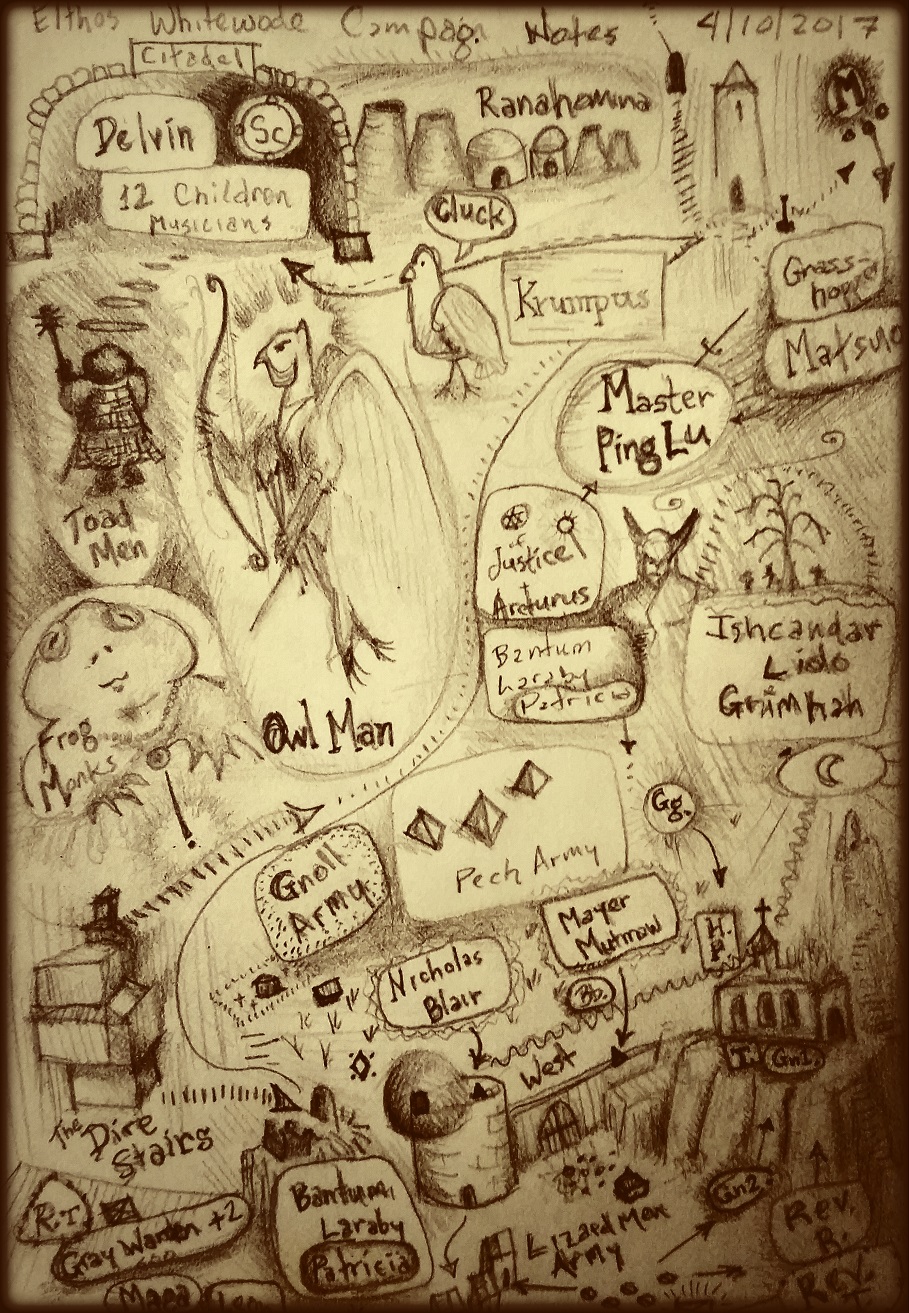 Elthos Whitewode Campag. Notes 4/10/2017
Citadel
Delvin
Sc
12 Children
Musicians
Ranahomina
M
Cluck
Krumpus
Grass-
hopper
Matsuo
Master
Ping Lu
Toad
Men
of
Justice
+
Arcturus
Bantum
Laraby
Patricia
Ishcandar
Lido
Grimhah
Owl Man
Frog
Monks
Gg.
Pech Army
Gnoll
Army
Mayer
Mutmow
H.P.
Nicholas
Blair
Bb.
West
T.
Gn1.
The Dire
Stairs
Bantum,
Laraby
Patricia
R.T
Gray Warden +2
Lizard Men
Army
Gn2.
Rev.
R.
Rev.
Mana